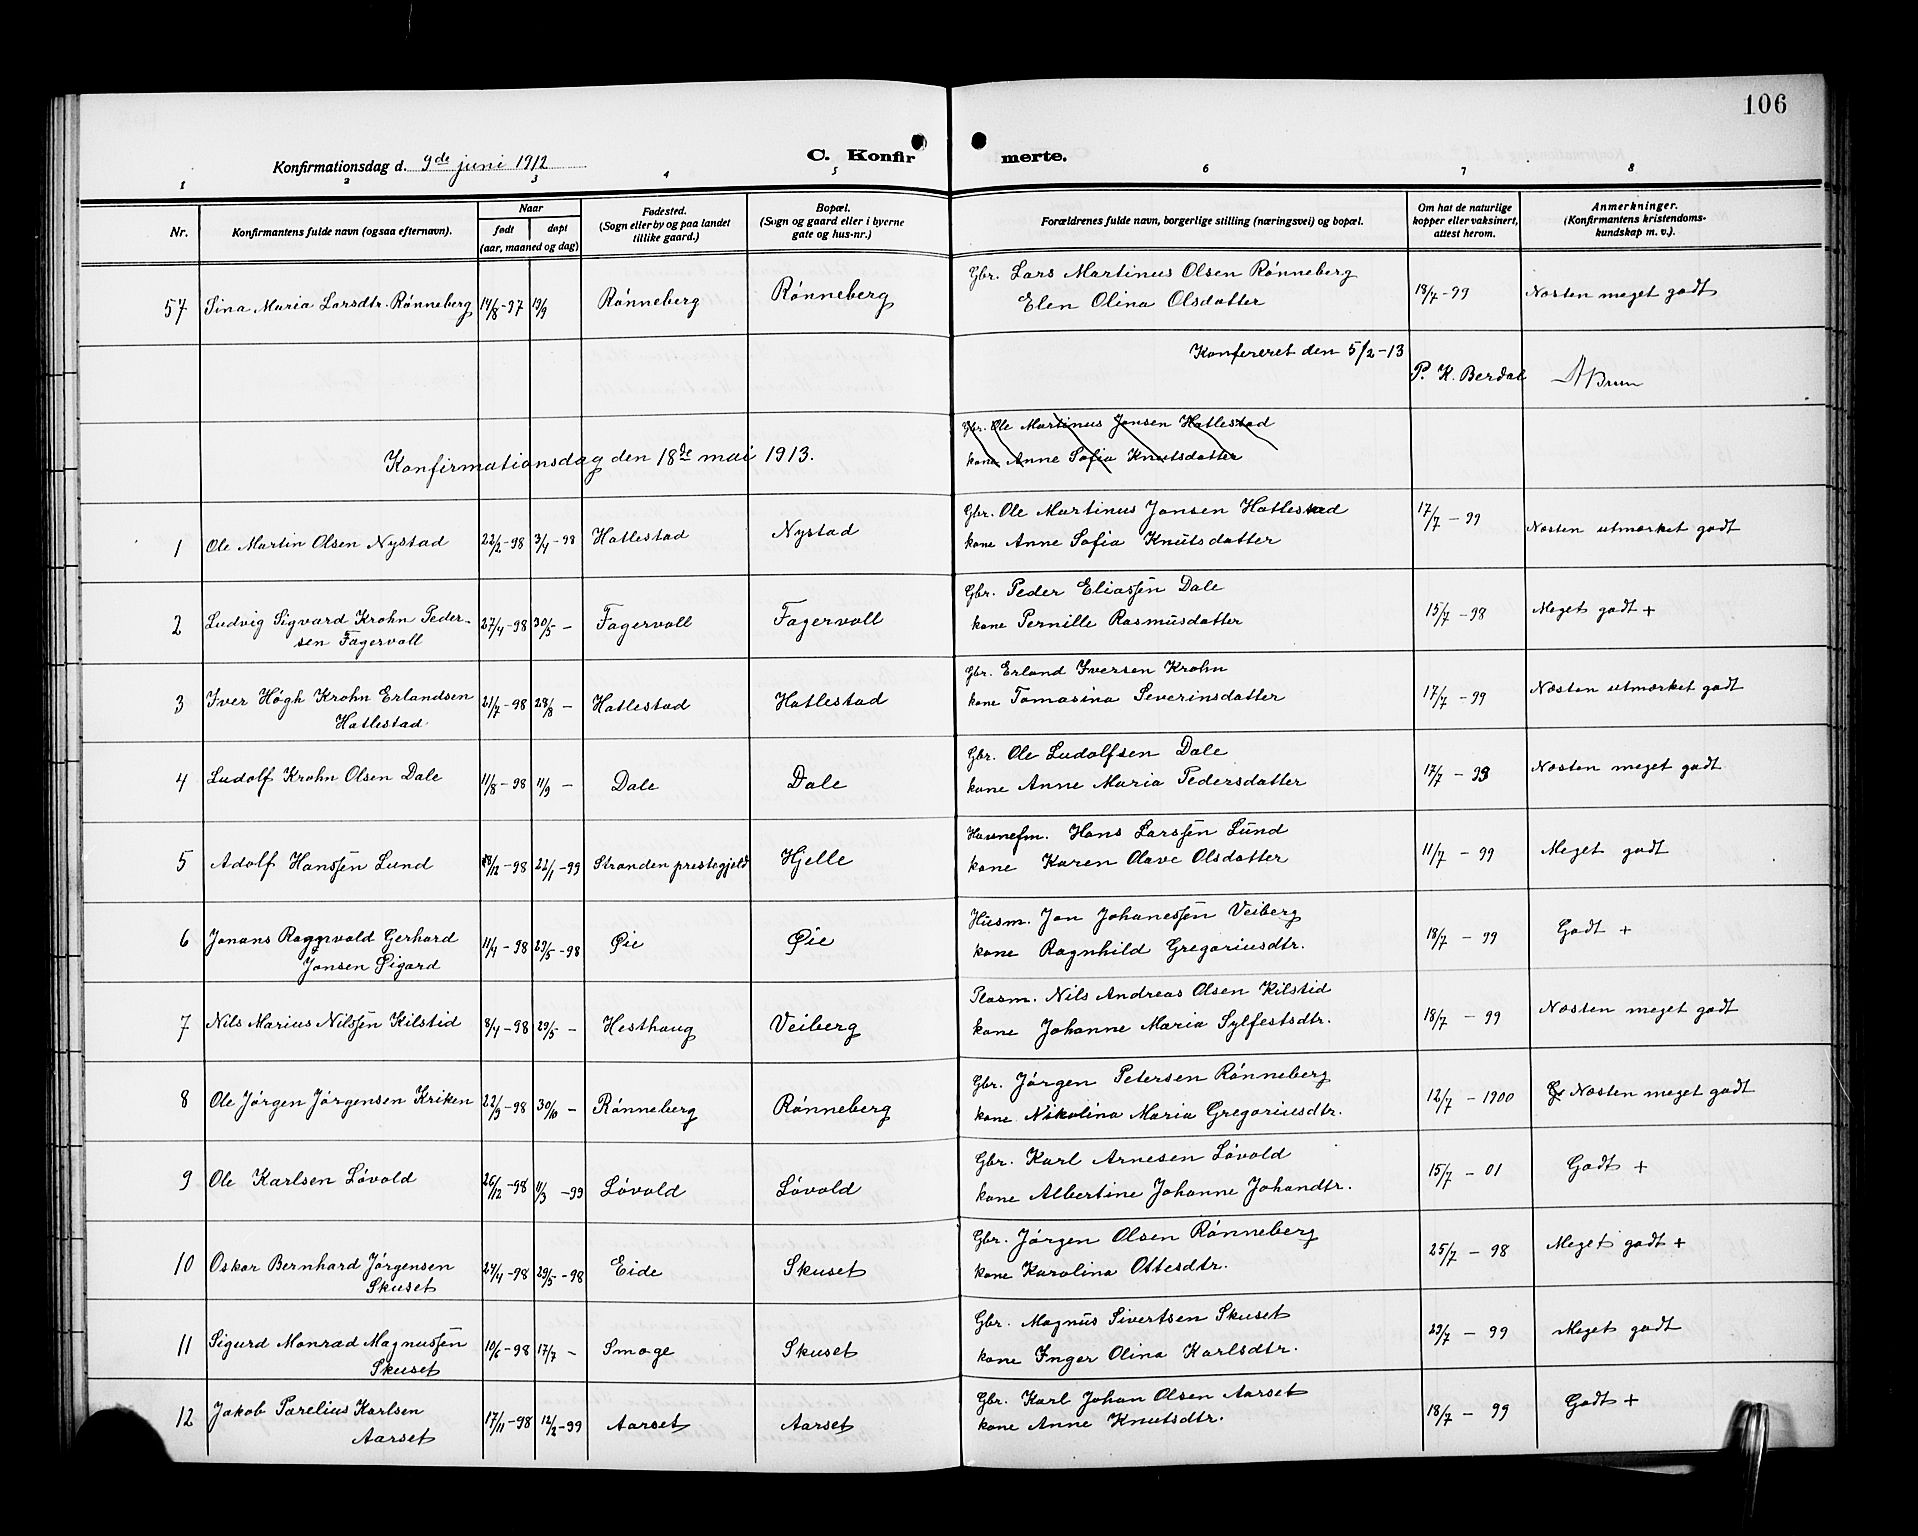 106
Konfirmationsdag d. 9de juni 1912
C. Konfirmerte.
1 2 3 4 5 6 7 8
Nr.
Konfirmantens fulde navn (ogsaa efternavn).
Naar
født døpt
(aar, maaned og dag)
Fødested.
(Sogn eller by og paa landet
tillike gaard.)
Bopæl.
(Sogn og gaard eller i byerne
gate og hus-nr.)
Forældrenes fulde navn, borgerlige stilling (næringsvei) og bopæl.
Om hat de naturlige
kopper eller vaksinert,
attest herom.
Anmerkninger.
(Konfirmantens kristendoms-
kundskap m. v.).
57 Sina Maria Larsdtr. Rønneberg 14/8-97 19/9 Rønneberg Rønneberg Gbr. Lars Martinus Olsen Rønneberg 18/7-99 Næsten meget godt
Elen Olina Olsdatter
Konfereret den 5/2-13
P. K. Berdal ABruun
Gbr. Ole Martinus Jonsen Hatlestad
kone Anne Sofia Knutsdatter
Konfirmationsdag den 18de mai 1913.
1 Ole Martin Olsen Nystad 22/2-98 3/4-98 Hatlestad Nystad Gbr. Ole Martinus Jonsen Hatlestad 17/7-99 Næsten utmærket godt
kone Anne Sofia Knutsdatter
2 Ludvig Sigvard Krohn Peder- 27/4-98 30/5 - Fagervoll Fagervoll Gbr. Peder Eliassen Dale 15/7-98 Meget godt +
sen Fagervoll kone Pernille Rasmusdatter
3 Iver Høgh Krohn Erlandsen 21/7-98 28/8 - Hatlestad Hatlestad Gbr. Erland Iversen Krohn 17/7-99 Næsten utmærket godt
Hatlestad kone Tomasina Severinsdatter
4 Ludolf Krohn Olsen Dale 11/8-98 11/9 - Dale Dale Gbr. Ole Ludolfsen Dale 17/7-99 Næsten meget godt
kone Anne Maria Pedersdatter
5 Adolf Hanssen Lund /12-98 22/1-99 Stranden prestegjeld Hjelle Havnefm. Hans Larssen Lund 11/7-99 Meget godt
kone Karen Olave Olsdatter
6 Jonans Ragnvald Gerhard 11/4-98 29/5-98 Øie Øie Husm. Jon Johanessen Veiberg 18/7-99 Godt +
Jonsen Øigard kone Ragnhild Gregoriusdtr.
7 Nils Marius Nilssen Kilstid 8/4-98 29/5 - Hesthaug Veiberg Plasm. Nils Andreas Olsen Kilstid 18/7-99 Næsten meget godt
kone Johanne Maria Sylfestsdtr.
8 Ole Jørgen Jørgensen Kriken 22/9-98 30/10 - Rønneberg Rønneberg Gbr. Jørgen Petersen Rønneberg 12/7-1900 Næsten meget godt
kone Nikolina Maria Gregoriusdtr.
9 Ole Karlsen Løvold 26/12-98 11/3-99 Løvold Løvold Gbr. Karl Arnesen Løvold 15/7-01 Godt +
kone Albertine Johanne Johandtr.
10 Oskar Bernhard Jørgensen 24/4-98 29/5-98 Eide Skuset Gbr. Jørgen Olsen Rønneberg 25/7-98 Meget godt +
Skuset kone Karolina Ottesdtr.
11 Sigurd Monrad Magnussen 10/6-98 17/7 - Smoge Skuset Gbr. Magnus Sivertsen Skuset 29/7-99 Meget godt
Skuset kone Inger Olina Karlsdtr.
12 Jakob Parelius Karlsen 17/11-98 12/2-99 Aarset Aarset Gbr. Karl Johan Olsen Aarset 18/7-99 Godt +
Aarset kone Anne Knutsdtr.